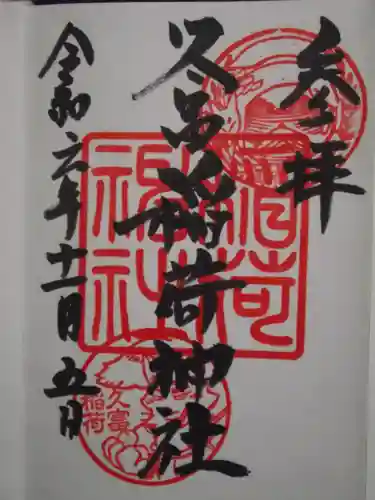 参拝
久冨稲荷神社
令和六年十一月五日
稲荷
神社
久富
稲荷